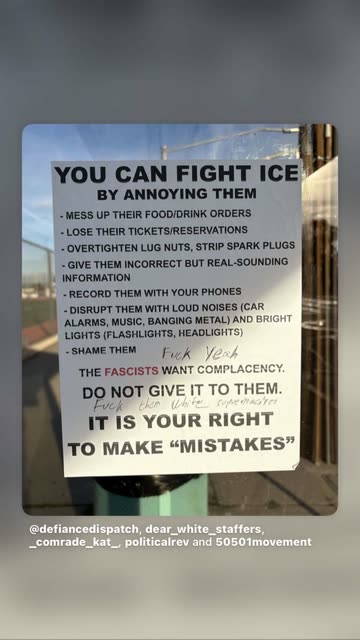 YOU CAN FIGHT ICE
BY ANNOYING THEM
- MESS UP THEIR FOOD/DRINK ORDERS
- LOSE THEIR TICKETS/RESERVATIONS
- OVERTIGHTEN LUG NUTS, STRIP SPARK PLUGS
- GIVE THEM INCORRECT BUT REAL-SOUNDING
INFORMATION
- RECORD THEM WITH YOUR PHONES
- DISRUPT THEM WITH LOUD NOISES (CAR
ALARMS, MUSIC, BANGING METAL) AND BRIGHT
LIGHTS (FLASHLIGHTS, HEADLIGHTS)
- SHAME THEM Fuck Yeah
THE FASCISTS WANT COMPLACENCY.
DO NOT GIVE IT TO THEM.
Fuck them white
IT IS YOUR RIGHT
TO MAKE “MISTAKES”
@defiancedispatch, dear_white_staffers,
_comrade_kat_, politicalrev and 50501movement